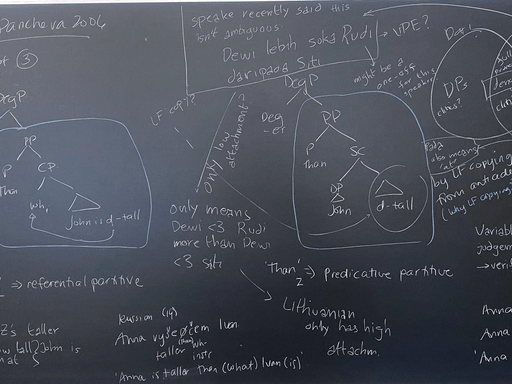 Pancheva 2006
3
DegP
PP
P
Than
CP
wh₁
John is d-tall
⇒ referential partitive
speaker recently said this
isn't ambiguous
Dewi lebih suka Rudi
daripada Siti
→ VPE?
might be a
one-off
for this
speaker
LF copy?
only low
attachment?
DegP
Deg
-er
PP
P
than
SC
DP
John
d-tall
only means
Dewi <3 Rudi
more than Dewi
<3 Siti
"Than"₂ ⇒ Predicative partitive
Lithuanian
only has high
attachm.
Russian (19)
Anna
Ivan
taller
wh-
instr
'Anna is taller than (what) Ivan (is)'
taller
John is
Dari
DPs
also means
'at'
by LF copying
from
(Why LF copying?)
Anna
Anna
'Anna